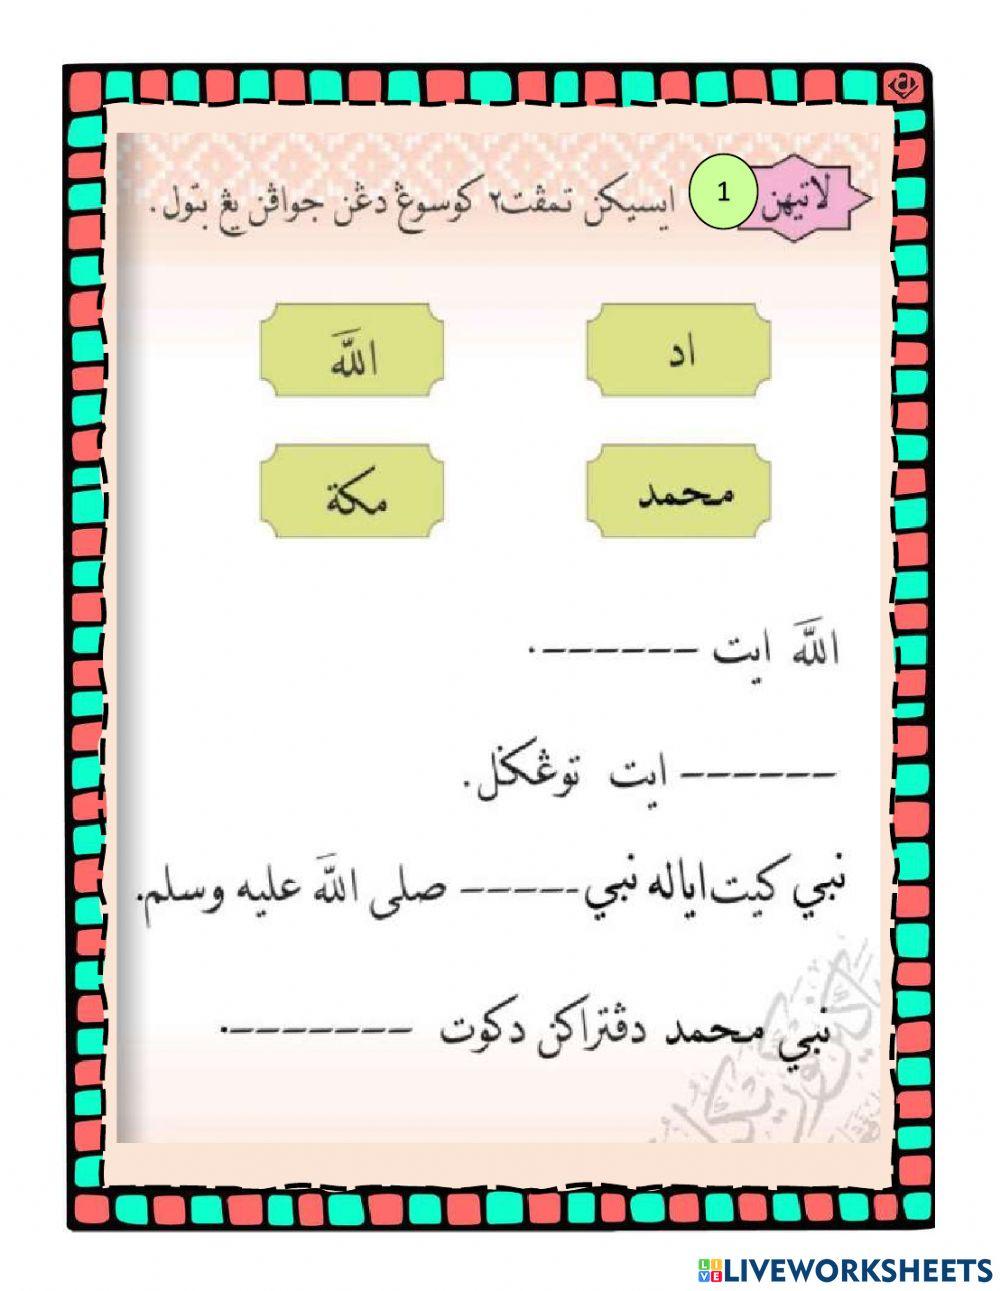 لاتيهن 1 ايسيكن تمڤت٢ كوسوڠ دڠن جواڤن يڠ بتول.
اد اللّٰه
محمد مكة
اللّٰه ايت ------.
------ ايت توڠݢل.
نبي كيت اياله نبي ------ صلى اللّٰه عليه وسلم.
نبي محمد دڤتراكن دكوت -------.
LIVEWORKSHEETS